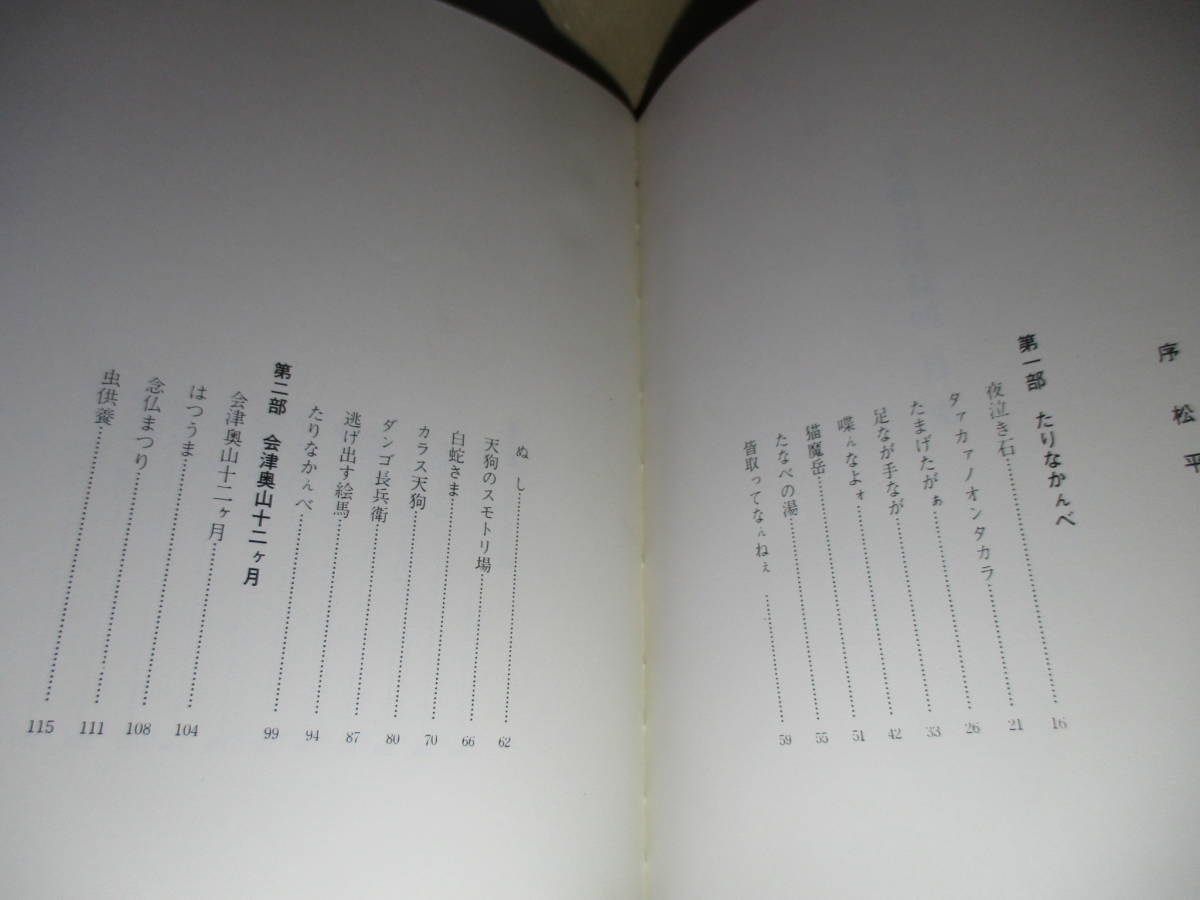 序 松平
第一部 たりなかんべ
夜泣き石 16
タァカァノオンタカラ 21
たまげたがぁ 26
足なが手なが 33
喋んなよォ 42
猫魔岳 51
たなべの湯 55
皆取ってなんねぇ 59
ぬし 62
天狗のスモトリ場 66
白蛇さま 70
カラス天狗 80
ダンゴ長兵衛 87
逃げ出す絵馬 94
たりなかんべ 99
第二部 会津奥山十二ヶ月
会津奥山十二ヶ月 104
はつうま 108
念仏まつり 111
虫供養 115